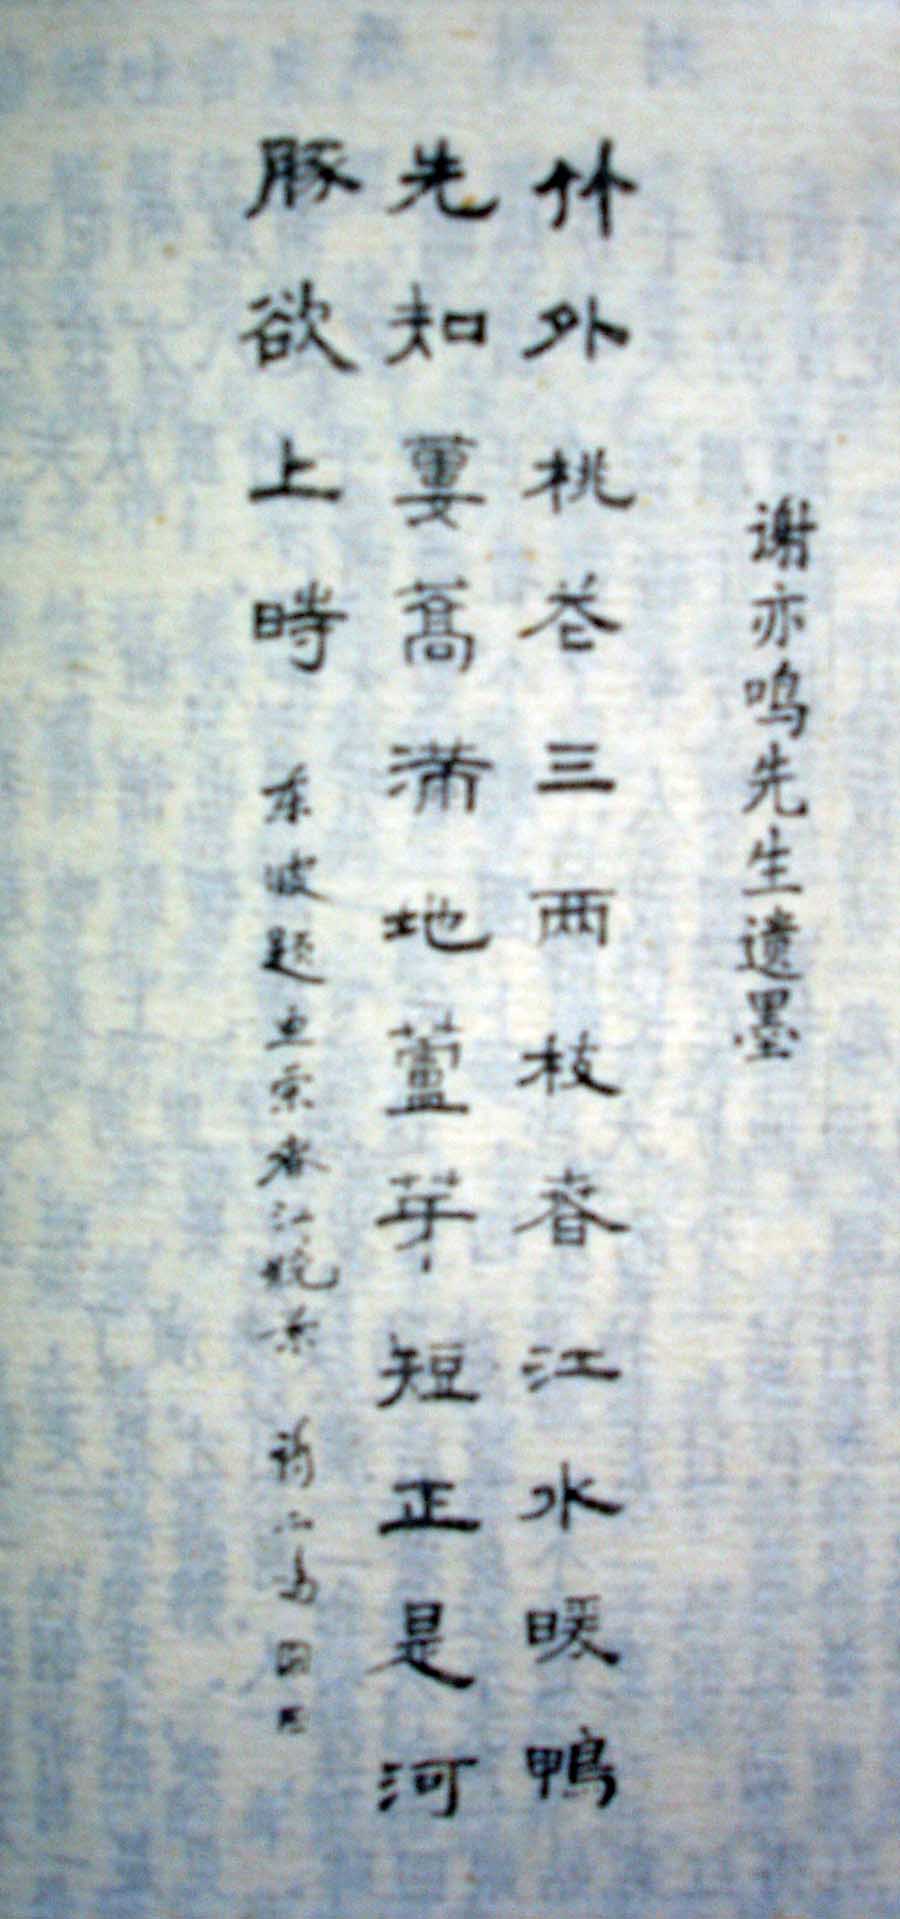 谢亦鸣先生遗墨
竹外桃花三两枝春江水暖鴨
先知蔞蒿满地蘆芽短正是河
豚欲上時 东坡题惠崇春江晚景 谢亦鸣